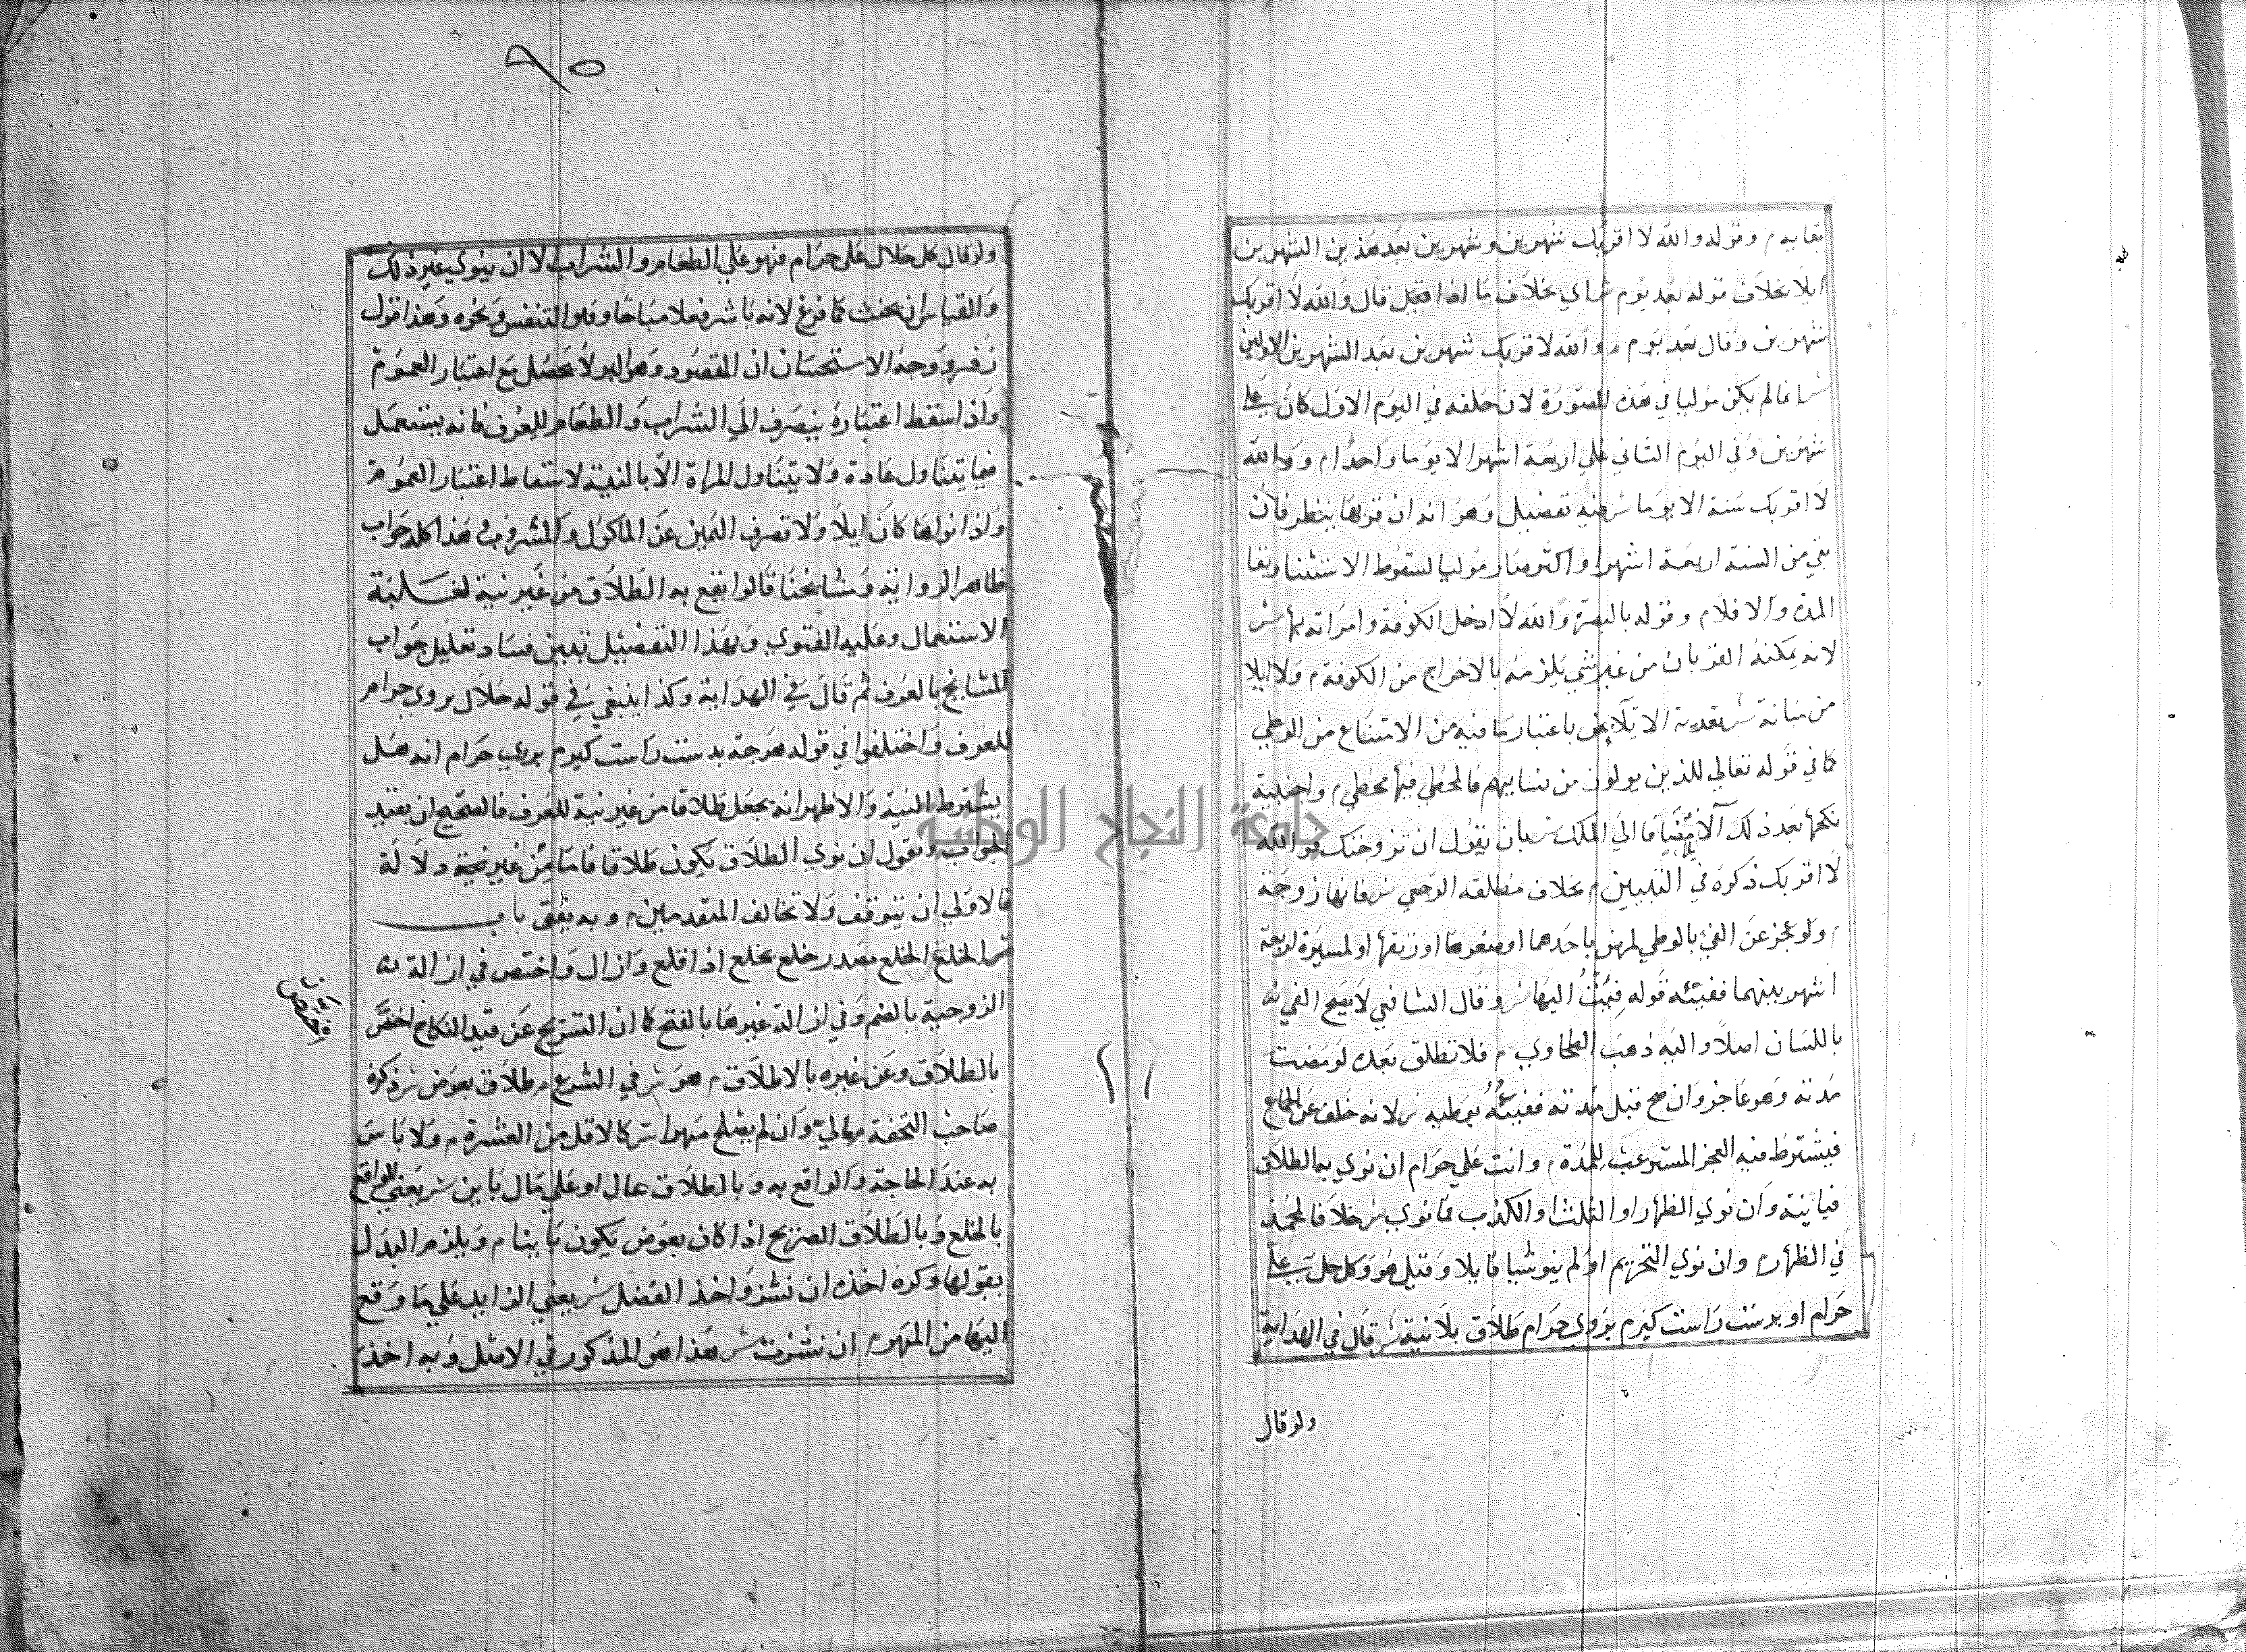 بقايه م وقوله والله لا اقربك شهرين وشهرين بعد هذين الشهرين
ايلا بخلاف قوله بعد يوم ش اي بخلاف ما اذا قبل قال والله لا اقربك
شهرين وقال بعد يوم م والله لا قربك شهرين بعد الشهرين الاولين
ش انما لم يكن موليا في هذه الصورة لان حلفه في اليوم الاول كان على
شهرين وفي اليوم الثاني على اربعة اشهر الا يوما واحدا م ووالله
لا اقربك سنة الا يوما ش فيه تفضيل وهو انه ان قربها ينظر فان
بقي من السنة اربعة اشهر او اكثر صار موليا لسقوط الاستثنا وبقا
المدة والا فلا م وقوله بالبصرة والله لا ادخل الكوفة وامراته بها ش
لانه يمكنه القربان من غير شي يلزمه بالاخراج من الكوفة م ولا ايلا
من مبانة ش تعدية الايلا بمن باعتبار ما فيه من الامتناع من الوطي
كما في قوله تعالى للذين يولون من نسايهم واجنبية
نكحها بعد ذلك الا مضافا الى الملك ش بان يقول ان تزوجتك فوالله
لا اقربك ذكره في م بخلاف مطلقه الرجعي ش فانها زوجة
م ولو عجز عن الفي بالوطي لمرض باحدهما او صغرها او رتقها او لمسيرة اربعة
اشهر بينهما ففيئه قوله فئت اليها ش وقال الشافعي لا يصح الفي
باللسان اصلا واليه ذهب الطحاوي م فلا تطلق بعده لو مضت
مدته وهو عاجز وان صح قبل مدته ففيئه بوطيه ش لانه خلف عن الجماع
فيشترط فيه العجز المستوعب للمدة م وانت علي حرام ان نوي بها الطلاق
فباينة وان نوي الظهار او الثلث او الكذب فما نوي ش خلافا لمحمد
في الظهار م وان نوي التحريم او لم ينو شيا فايلا وقيل هو وكل حل على
حرام او برست راست كيرم بروي حرام طلاق بلا نية ش قال في الهداية
ولو قال
٩٥
ولو قال كل حلال على حرام فهو علي الطعام والشراب الا ان ينوي غير ذلك
والقياس ان يحنث كما فرغ لانه باشر فعلا مباحا وهو التنفس ونحوه وهذا قول
زفر ووجه الاستحسان ان المقصود وهو البر لا يحصل مع اعتبار العموم
واذا سقط اعتباره ينصرف الى الشراب والطعام للعرف فانه يستعمل
فيما يتناول عادة ولا يتناول المراة الا بالنية لاسقاط اعتبار العموم
واذا نواها كان ايلا ولا تصرف اليمين عن الماكول والمشروب هذا كله جواب
ظاهر الرواية ومشايخنا قالوا يقع به الطلاق من غير نية لغلبة
الاستعمال وعليه الفتوي وبهذا التفضيل تبين فساد تعليل جواب
المشايخ بالعرف ثم قال في الهداية وكذا ينبغي في قوله حلال بروي حرام
للعرف واختلفوا في قوله هرجه بدست راست كيرم بروي حرام انه هل
يشترط النية والاظهر انه يجعل طلاقا من غير نية للعرف فالصحيح ان يقيد
الجواب ونقول ان نوي الطلاق يكون طلاقا فاما من غير نية دلالة
فالاولي ان يتوقف ولا تخالف المتقدمين م وبه يفتى باب
ش الخلع الخلع مصدر خلع يخلع اذا قلع وازال واختص في ازالة
الزوجية بالضم وفي ازالة غيرها بالفتح كما ان التسريح عن قيد النكاح اختص
بالطلاق وعن غيره بالاطلاق م هو ش في الشرع م طلاق بعوض ش ذكره
صاحب التحفة م وان لم يصلح مهرا ش كالاقل من العشرة م ولا باس
به عند الحاجة والواقع به وبالطلاق عال او على مال باين ش يعني الواقع
بالخلع وبالطلاق الصريح اذا كان بعوض يكون باينا م ويلزم البدل
بقولها وكره اخذه ان نشز واخذ الفضل ش يعني الزايد على ما وقع
اليها من المهر م ان نشزت ش هذا هو المذكور في الاصل وبه اخذ
جامعة النجاح الوطنية